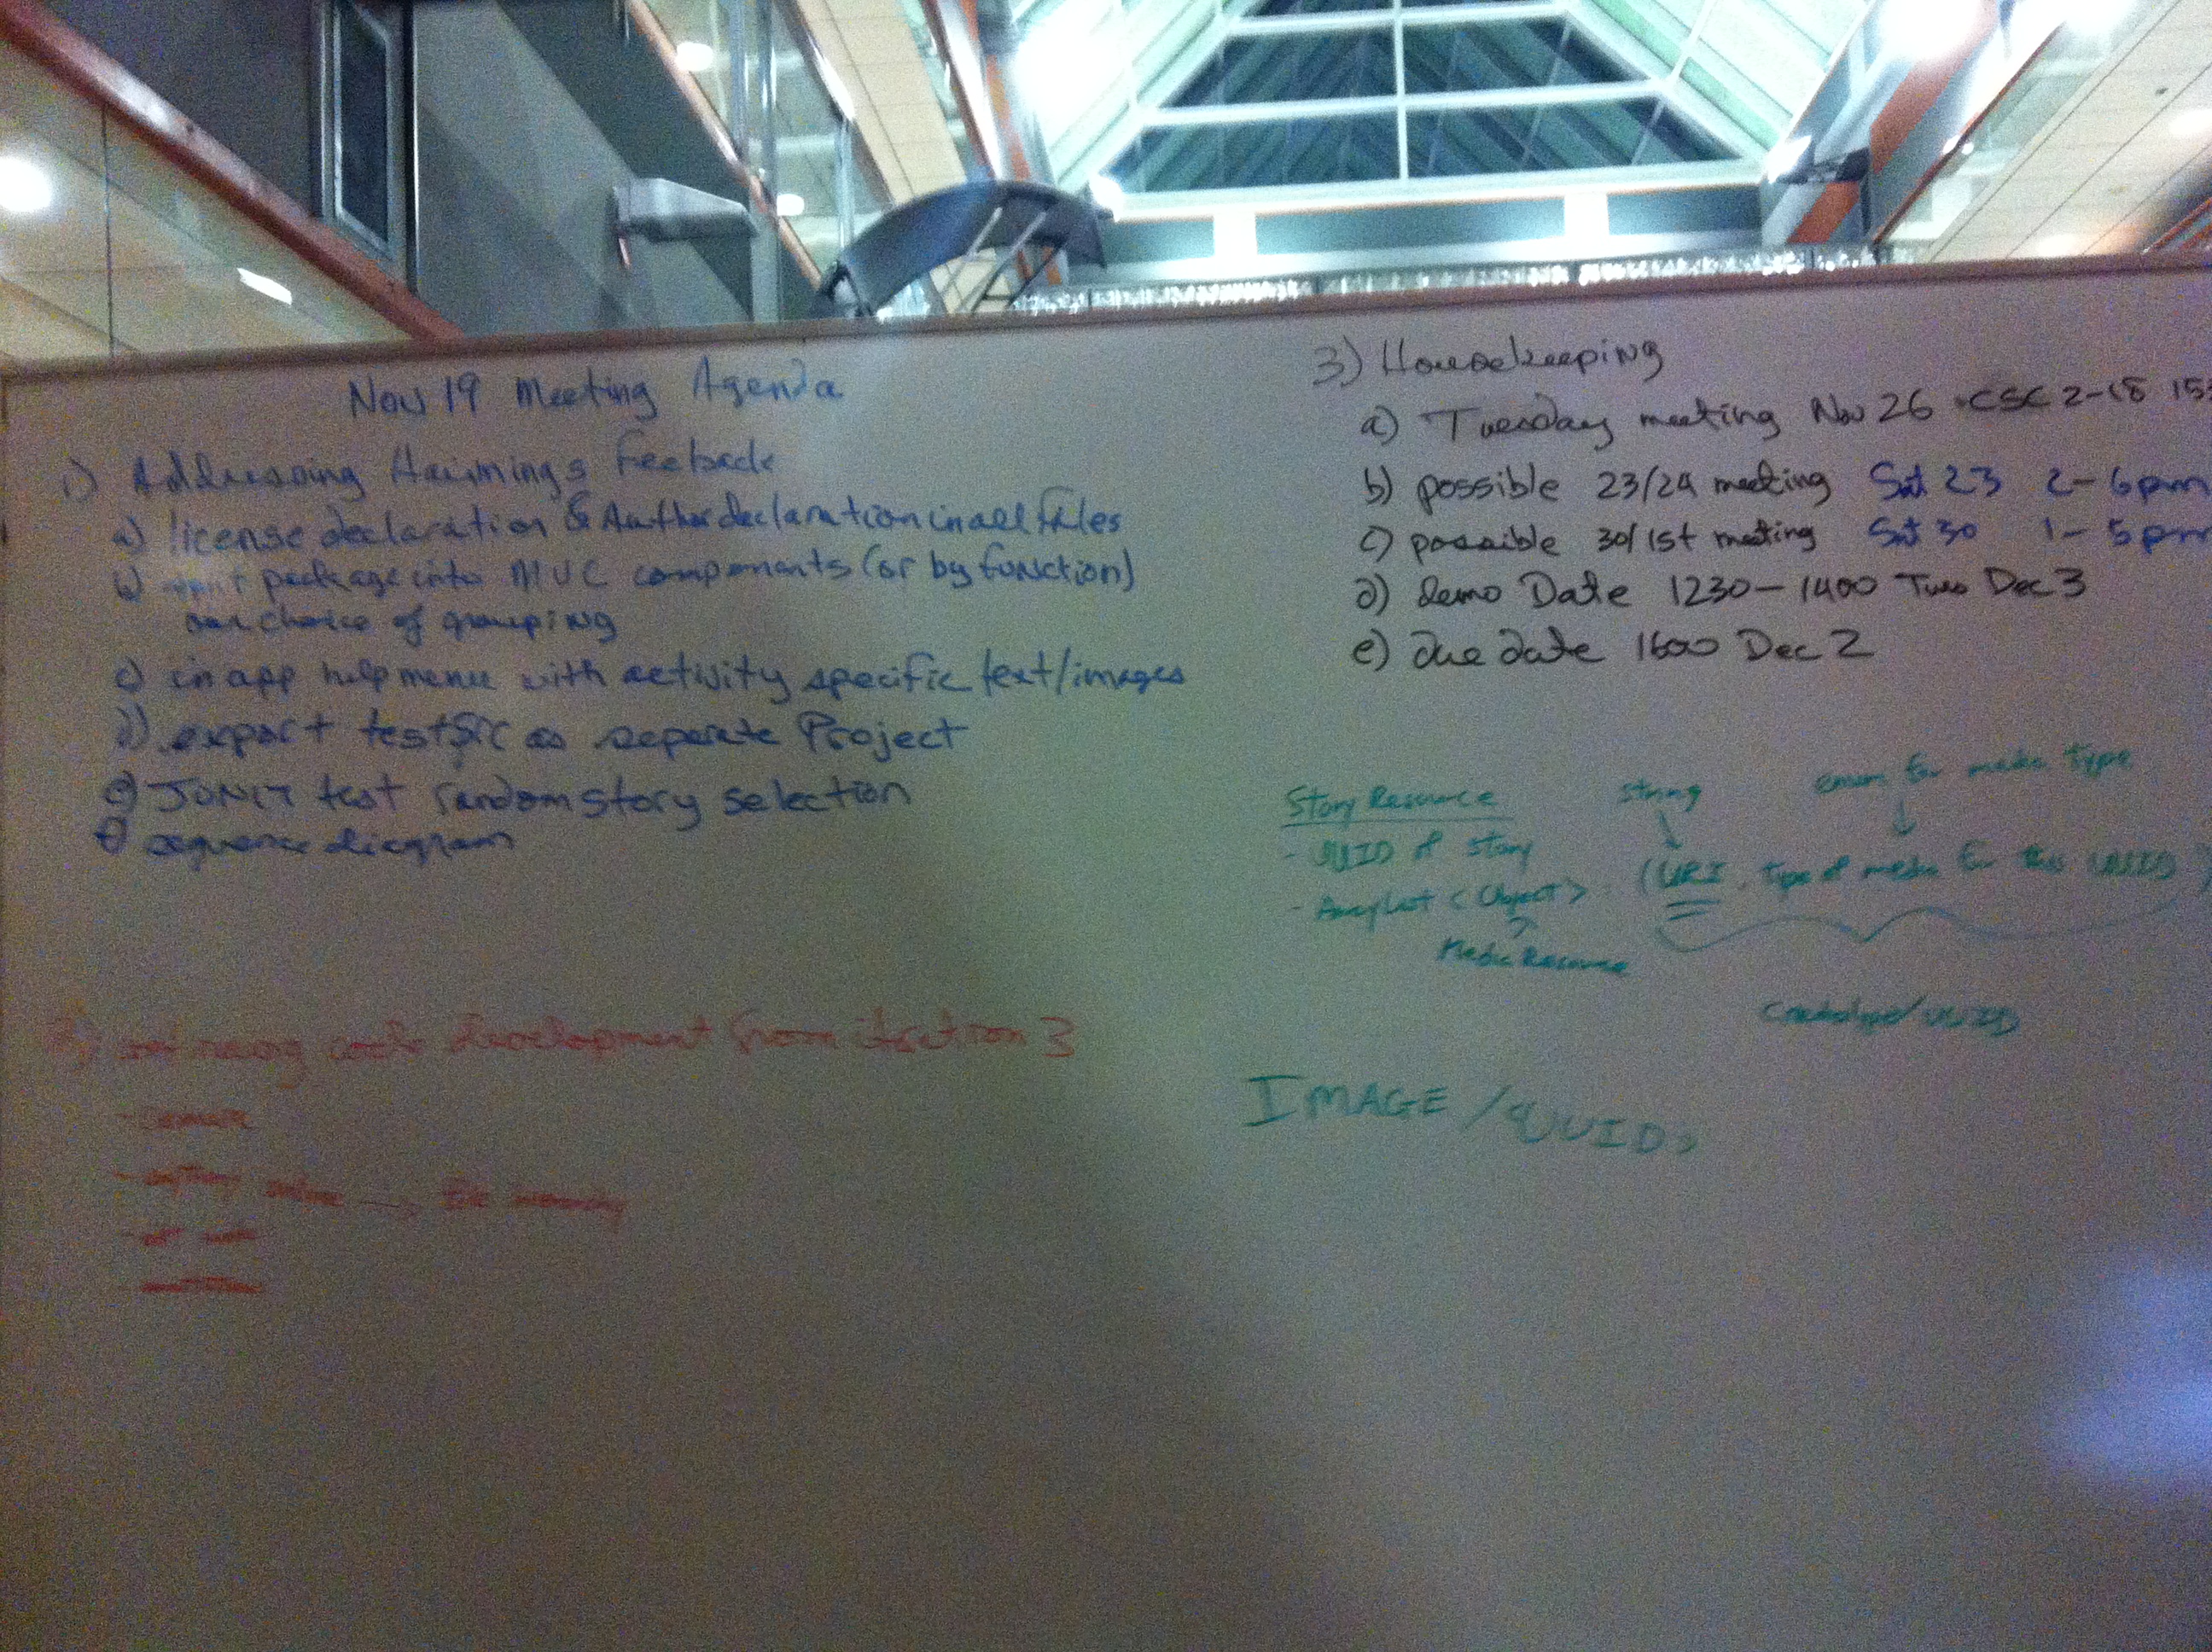 Nov 19 Meeting Agenda
1) Addressing Haiming's Feeback
a) license declaration & Author declaration in all files
b) package into MVC components (or by function)
our choice of grouping
c) in app help menu with activity specific text/images
d) export testSrc as separate Project
e) JUNIT test random story selection
f) sequence diagram
2) code development from itertion 3
- camera
3) Housekeeping
a) Tuesday meeting Nov 26 CSC 2-18
b) possible 23/24 meeting Sat 23 2-6pm
c) possible 30/1st meeting Sat 30 1-5pm
d) demo Date 1230-1400 Tues Dec 3
e) due date 1600 Dec 2
Story Resource
string
enum for media type
- UUID of story
- ArrayList <Object> (URI, type of media for this UUID)
Media Resource
/UUID
IMAGE / UUIDs